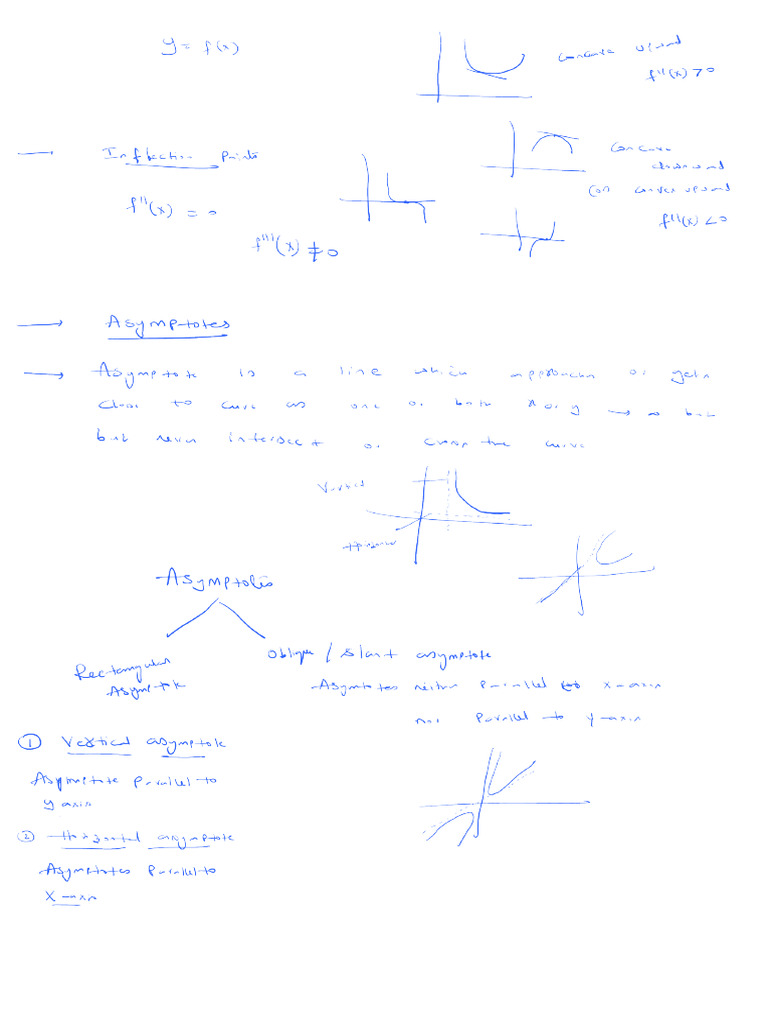 y = f(x)
concave upward
f''(x) > 0
→ Inflection Points
f''(x) = 0
f'''(x) ≠ 0
concave
downward
(or) convex upward
f''(x) < 0
→ Asymptotes
→ Asymptote is a line which approaches or gets
close to curve as one or both x or y → ∞ but
but never intersect or cross the curve
Vertical
Horizontal
Asymptotes
Rectangular
Asymptote
Oblique / slant asymptote
Asymptotes neither parallel to x-axis
nor parallel to y-axis
① Vertical asymptote
Asymptote parallel to
y axis
② Horizontal asymptote
Asymptotes parallel to
x-axis